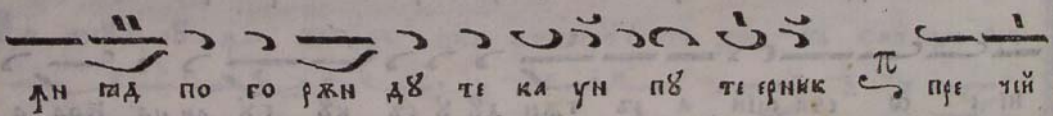 ꙟн ꙗд по го рѫн дꙋ те ка ун пꙋ те ерник π пре чїй